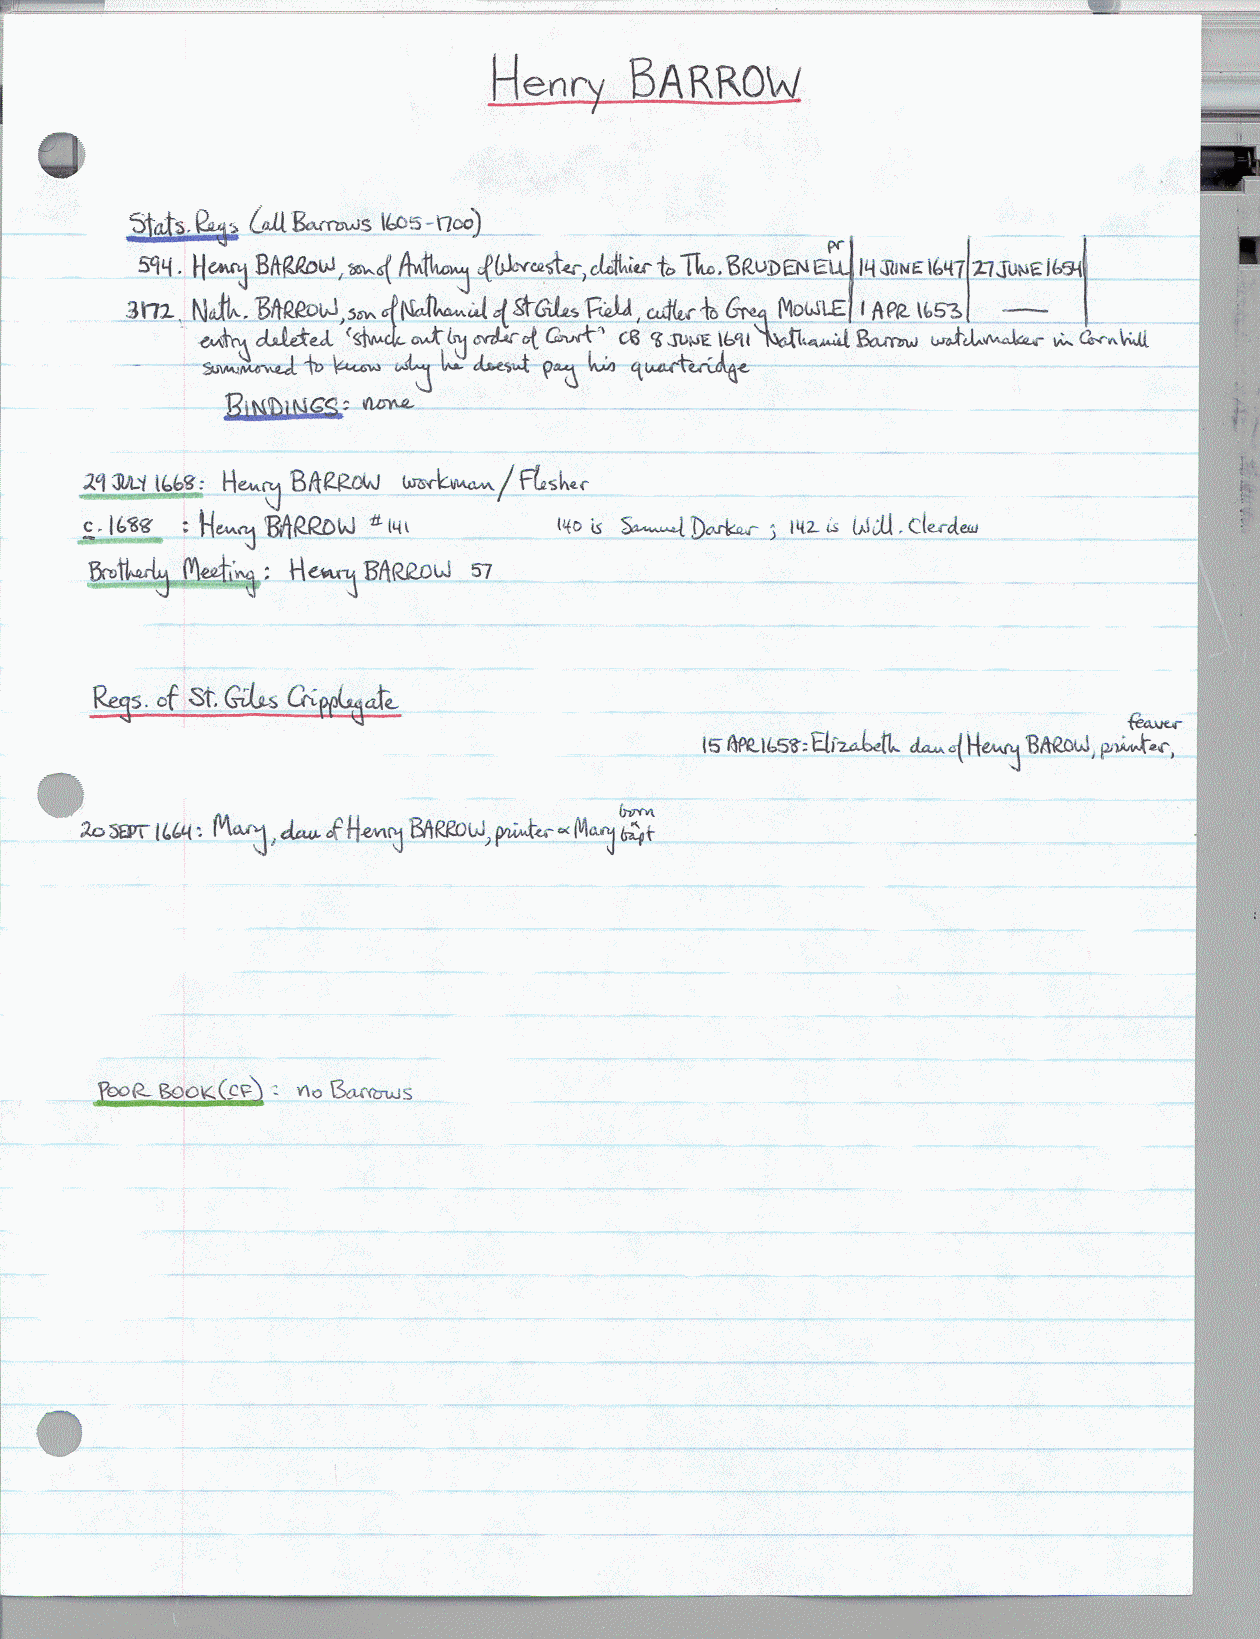 Henry BARROW
Stats. Regs (all Barrows 1605-1700)
pr
594. Henry BARROW, son of Anthony of Worcester, clothier to Tho. BRUDENELL 14 JUNE 1647 27 JUNE 1654
3172. Nath. BARROW, son of Nathaniel of St Giles Field, cutler to Greg MOWLE 1 APR 1653 —
entry deleted 'struck out by order of Court' CB 8 JUNE 1691 Nathaniel Barrow watchmaker in Cornhill
summoned to know why he doesnt pay his quarteridge
BINDINGS: none
29 JULY 1668: Henry BARROW workman/Flesher
c. 1688 : Henry BARROW #141 140 is Samuel Darker; 142 is Will. Clerdew
Brotherly Meeting: Henry BARROW 57
Regs. of St. Giles Cripplegate
feaver
15 APR 1658: Elizabeth dau of Henry BAROW, printer,
born
20 SEPT 1664: Mary, dau of Henry BARROW, printer & Mary & bapt
POOR BOOK (CF): no Barrows